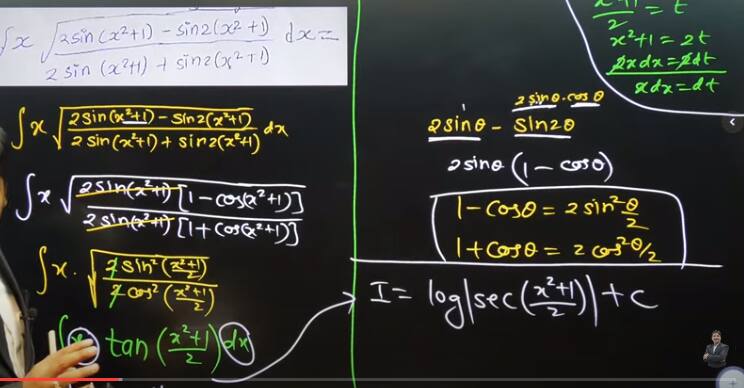 ∫x √(2sin(x²+1) − sin2(x²+1) / 2sin(x²+1) + sin2(x²+1)) dx =
∫x √(2sin(x²+1) − sin2(x²+1) / 2sin(x²+1) + sin2(x²+1)) dx
∫x √(2sin(x²+1)[1−cos(x²+1)] / 2sin(x²+1)[1+cos(x²+1)])
∫x. √(2sin²(x²+1/2) / 2cos²(x²+1/2))
∫x tan(x²+1/2) dx
x²+1/2 = t
x²+1 = 2t
2xdx = 2dt
xdx = dt
2sinθ.cosθ
2sinθ − sin2θ
2sinθ(1−cosθ)
1−cosθ = 2sin²θ/2
1+cosθ = 2cos²θ/2
I = log|sec(x²+1/2)|+c